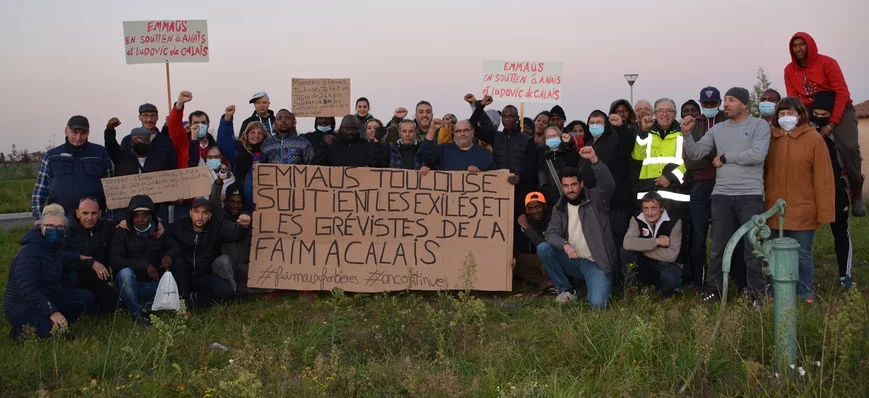 EMMAÜS
EN SOUTIEN à ANAÏS
et LUDOVIC de CALAIS
EMMAÜS
EN SOUTIEN à ANAÏS
et LUDOVIC de CALAIS
EMMAUS TOULOUSE
SOUTIENT LES EXILÉS ET
LES GRÉVISTES DE LA
FAIM A CALAIS
#faimauxfrontières #oncontinue